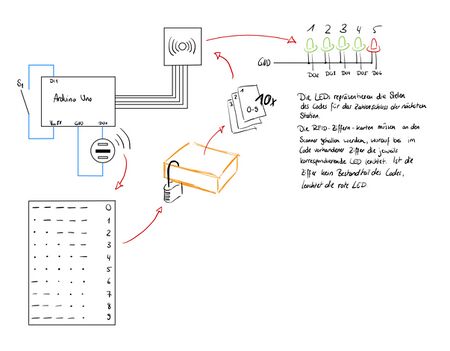 1 2 3 4 5
GND
D02 D03 D04 D05 D06
S1
D11
Arduino Uno
GND
1
2
3
10x
0-9
Die LEDs repräsentieren die Stellen
des Codes für das Zahlenschloss der nächsten
Station.
Die RFID-Ziffern-Karten müssen an den
Scanner gehalten werden, worauf bei im
Code vorhandener Ziffer die jeweils
korrespondierende LED leuchtet. Ist die
Ziffer kein Bestandteil des Codes,
leuchtet die rote LED
0
1
2
3
4
5
6
7
8
9